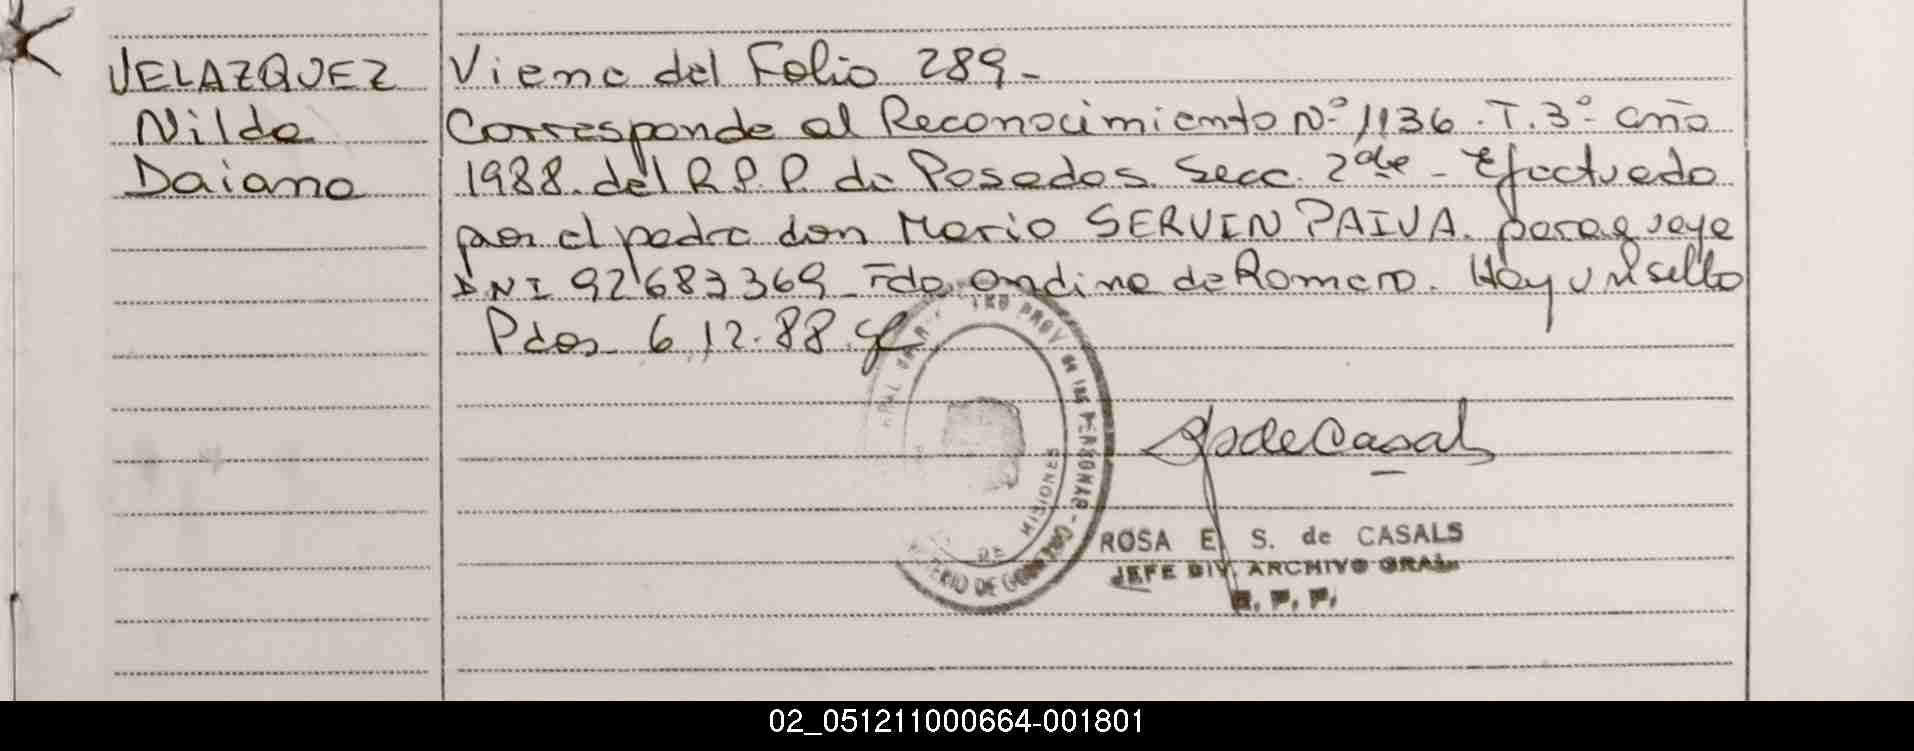 VELAZQUEZ
Nilda
Daiana
Viene del Folio 289-
Corresponde al Reconocimiento Nº 1136. T. 3º año
1988. del R.P.P. de Posadas. Secc. 2da - Efectuado
por el padre don Mario SERVIN PAIVA. paraguayo
DNI 92683369 - Fdo. Ondina de Romero. Hay un sello
Pdas 6.12.88.
PROV de las PERSONAS
MISIONES
DE
ROSA E. S. de CASALS
JEFE DIV. ARCHIVO GRAL.
R. P. P.
02_051211000664-001801